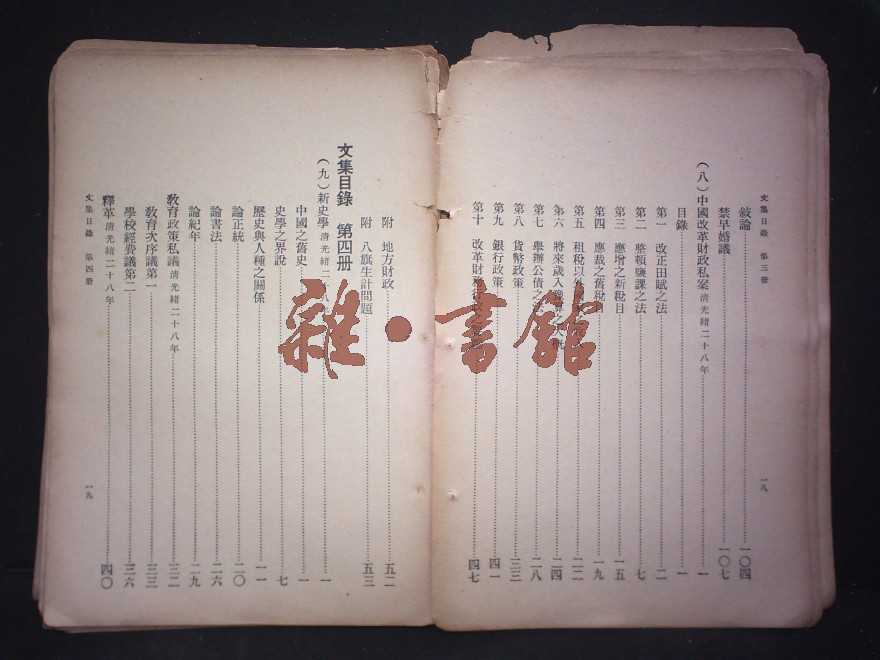 文集目錄 第三册 一八
敍論 一〇四
禁早婚議 一〇七
(八)中國改革財政私案 清光緒二十八年 一
目錄 一
第一 改正田賦之法 二
第二 整頓鹽課之法 七
第三 應增之新稅目 一五
第四 應裁之舊稅目 一九
第五 租稅以外 二二
第六 將來歲入 二四
第七 舉辦公債之法 二八
第八 貨幣政策 三三
第九 銀行政策 四一
第十 改革財務 四七
附 地方財政 五二
附 八旗生計問題 五三
文集目錄 第四册
(九)新史學 清光緒二十八 一
中國之舊史 一
史學之界說 七
歷史與人種之關係 一一
論正統 二〇
論書法 二六
論紀年 二九
教育政策私議 清光緒二十八年 三二
教育次序議第一 三三
學校經費議第二 三六
釋革 清光緒二十八年 四〇
文集目錄 第四册 一九
雜·書館